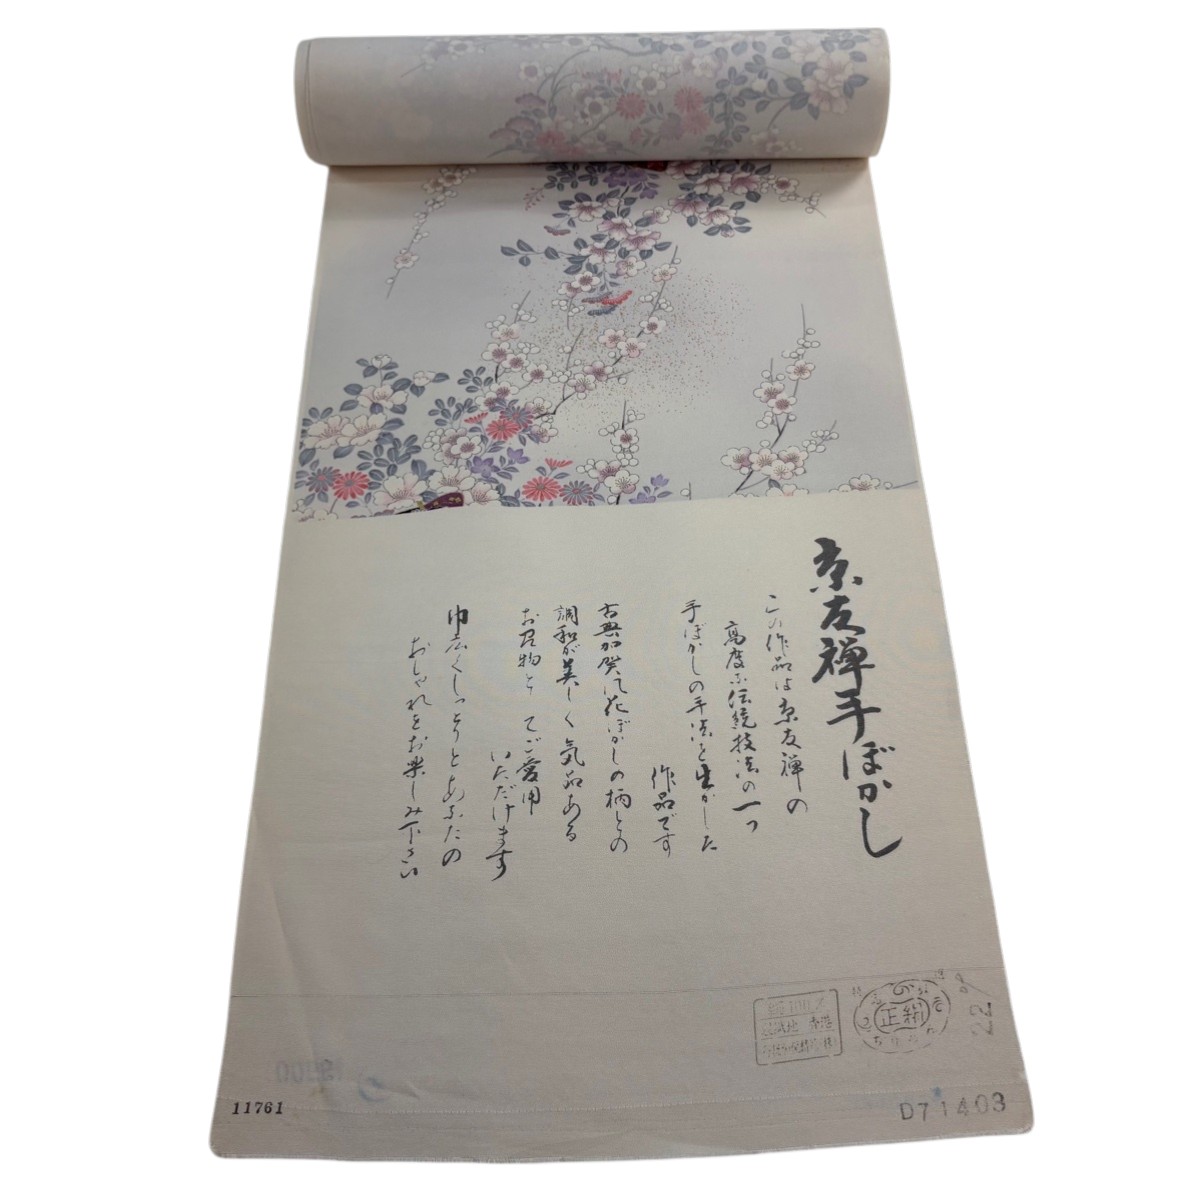 京友禅手ぼかし
この作品は京友禅の
高度な伝統技法の一つ
手ぼかしの手法を生かした
作品です
古典加賀花ぼかしの柄との
調和が美しく気品ある
お召物としてご愛用
いただけます
巾広くしっとりとあなたの
おしゃれをお楽しみ下さい
正絹
11761
D71403